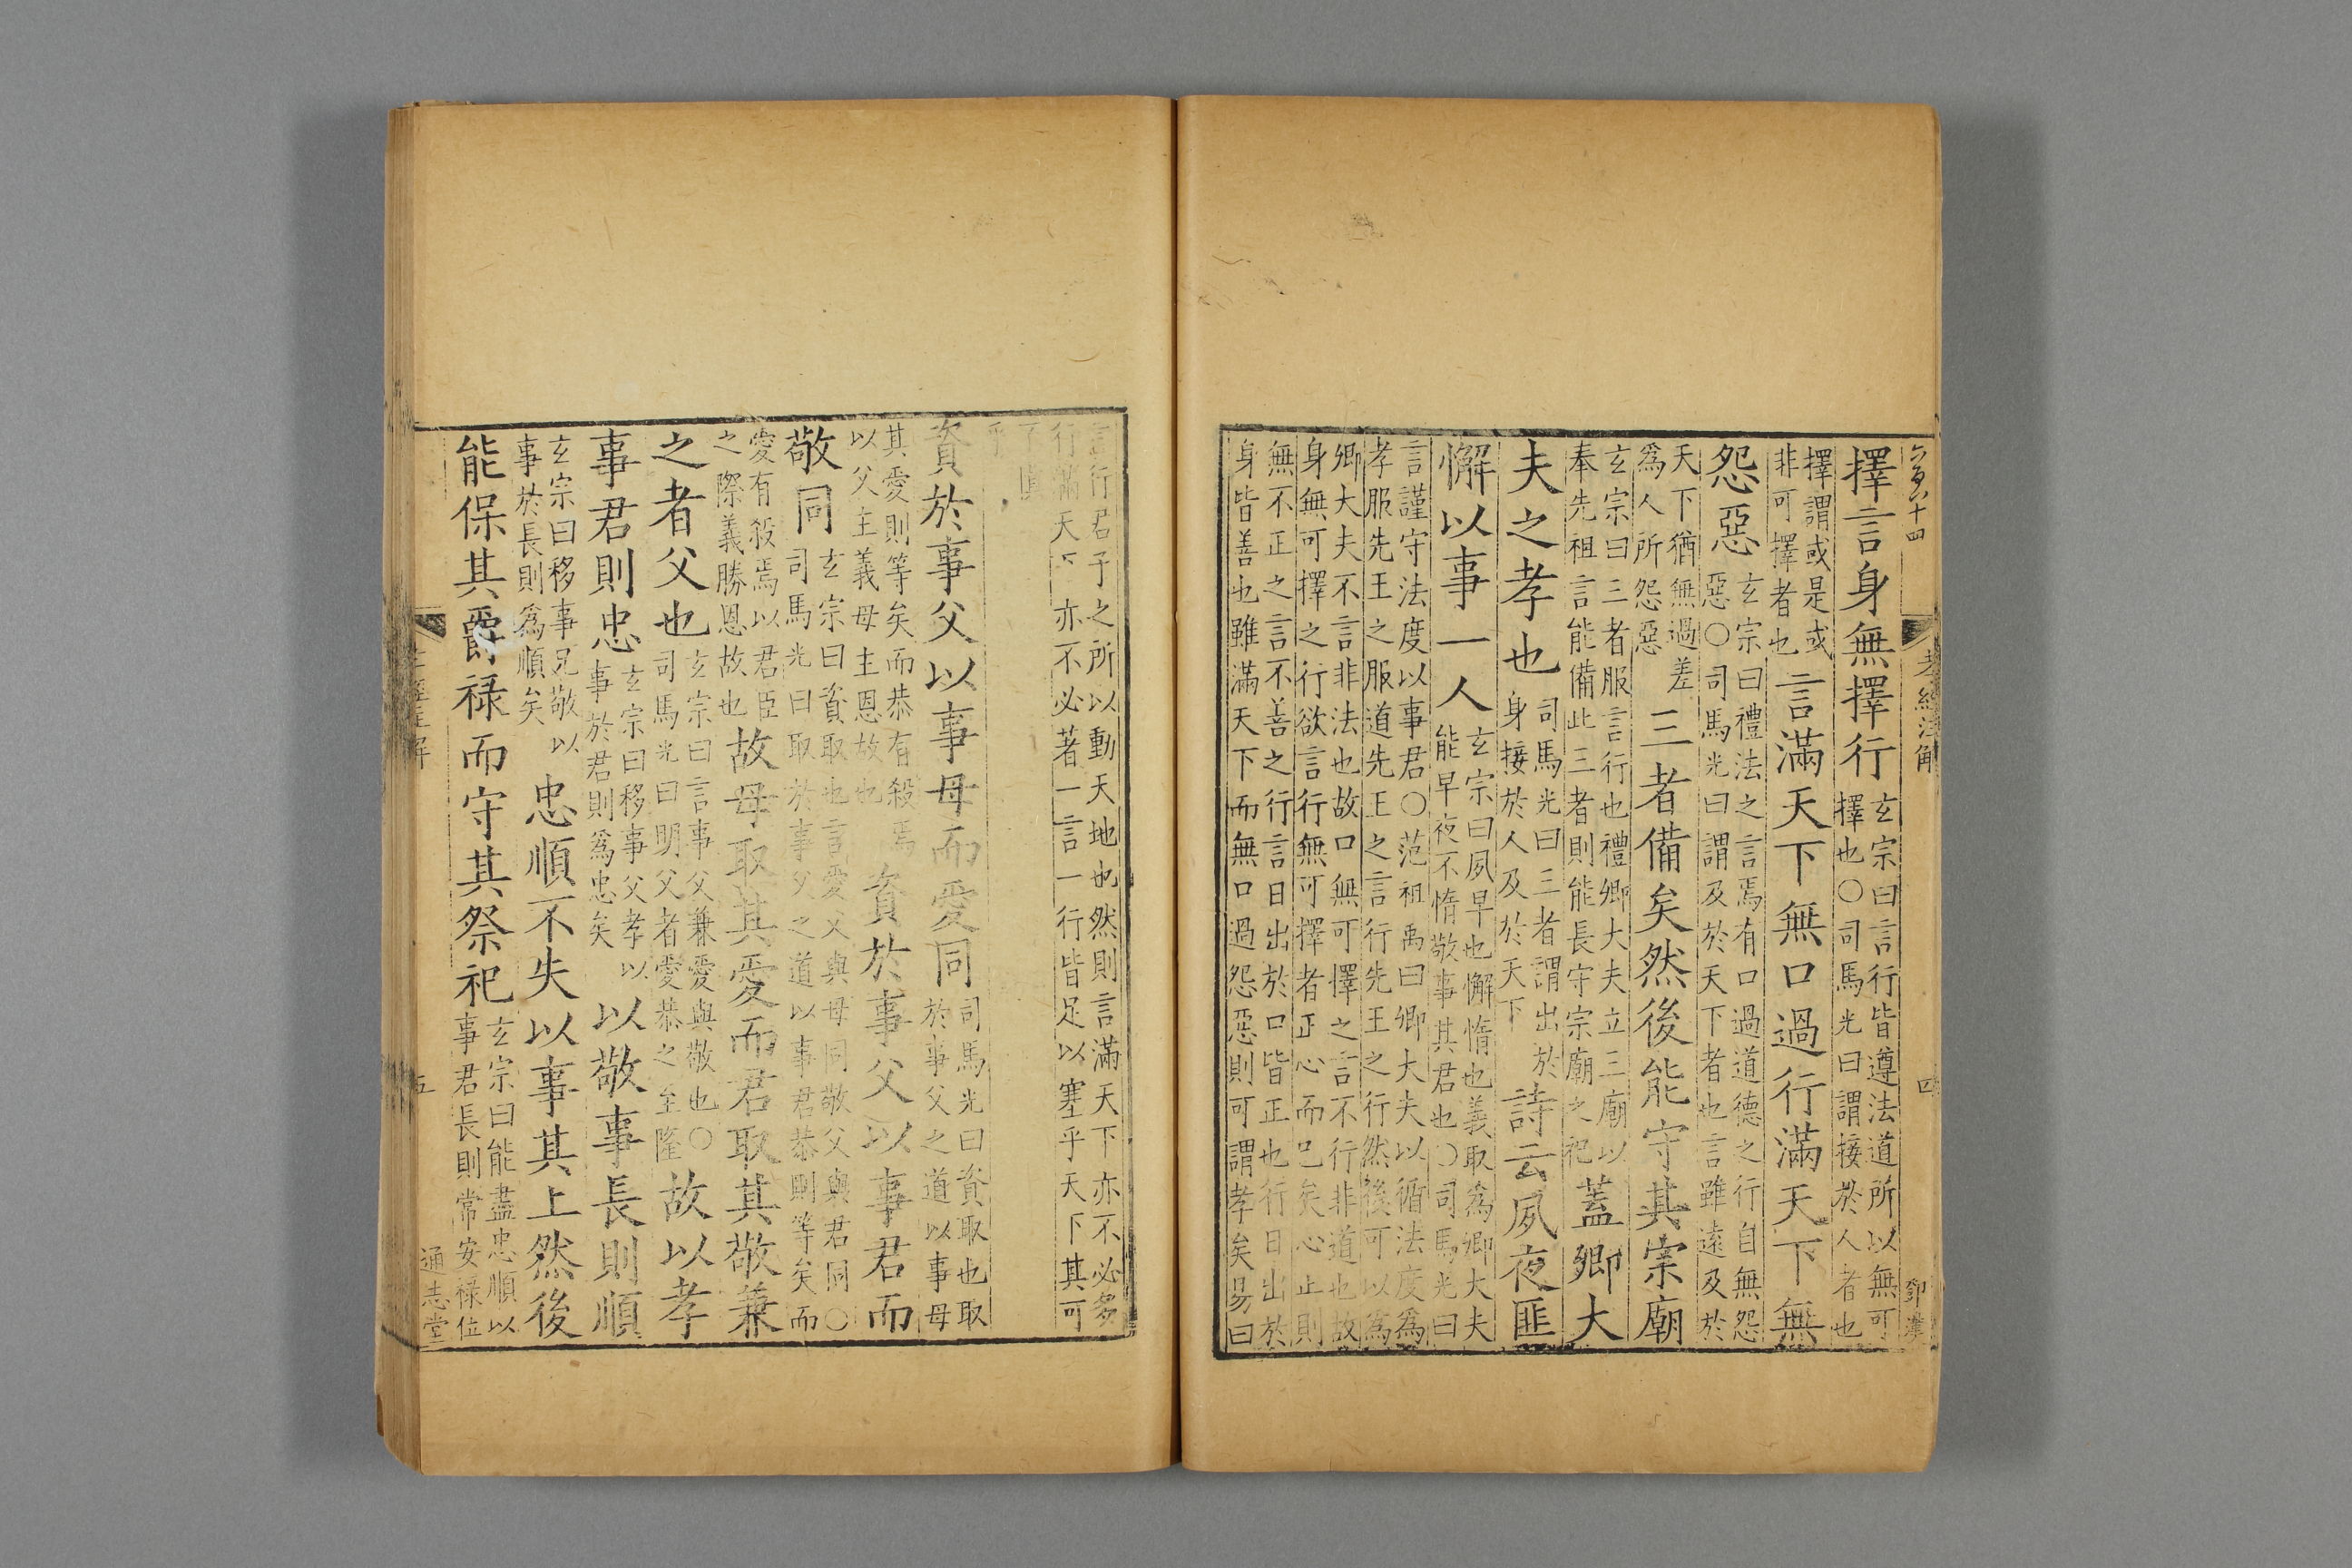 擇言身無擇行玄宗曰言行皆遵法道所以無可
擇也〇司馬光曰謂接於人者也
擇謂或是或
非可擇者也言滿天下無口過行滿天下無
怨惡玄宗曰禮法之言焉有口過道德之行自無怨
惡〇司馬光曰謂及於天下者也言雖遠及於
天下猶無過差
爲人所怨惡三者備矣然後能守其宗廟
玄宗曰三者服言行也禮卿大夫立三廟以
奉先祖言能備此三者則能長守宗廟之祀蓋卿大
夫之孝也司馬光曰三者謂出於
身接於人及於天下詩云夙夜匪
懈以事一人玄宗曰夙早也懈惰也義取爲卿大夫
能早夜不惰敬事其君也〇司馬光曰
言謹守法度以事君〇范祖禹曰卿大夫以循法度爲
孝服先王之服道先王之言行先王之行然後可以爲
卿大夫不言非法也故口無可擇之言不行非道也故
身無可擇之行欲言行無可擇者正心而已矣心正則
無不正之言不善之行言日出於口皆正也行日出於
身皆善也雖滿天下而無口過怨惡則可謂孝矣易曰
孝經注解
四
言行君子之所以動天地也然則言滿天下亦不必多
行滿天下亦不必著一言一行皆足以塞乎天下其可
不慎
乎
資於事父以事母而愛同司馬光曰資取也取
於事父之道以事母
其愛則等矣而恭有殺焉
以父主義母主恩故也資於事父以事君而
敬同玄宗曰資取也言愛父與母同敬父與君同〇
司馬光曰取於事父之道以事君恭則等矣而
愛有殺焉以君臣
之際義勝恩故也故母取其愛而君取其敬兼
之者父也玄宗曰言事父兼愛與敬也〇
司馬光曰明父者愛恭之至隆故以孝
事君則忠玄宗曰移事父孝以
事於君則爲忠矣以敬事長則順
玄宗曰移事兄敬以
事於長則爲順矣忠順不失以事其上然後
能保其爵祿而守其祭祀玄宗曰能盡忠順以
事君長則常安祿位
五
通志堂